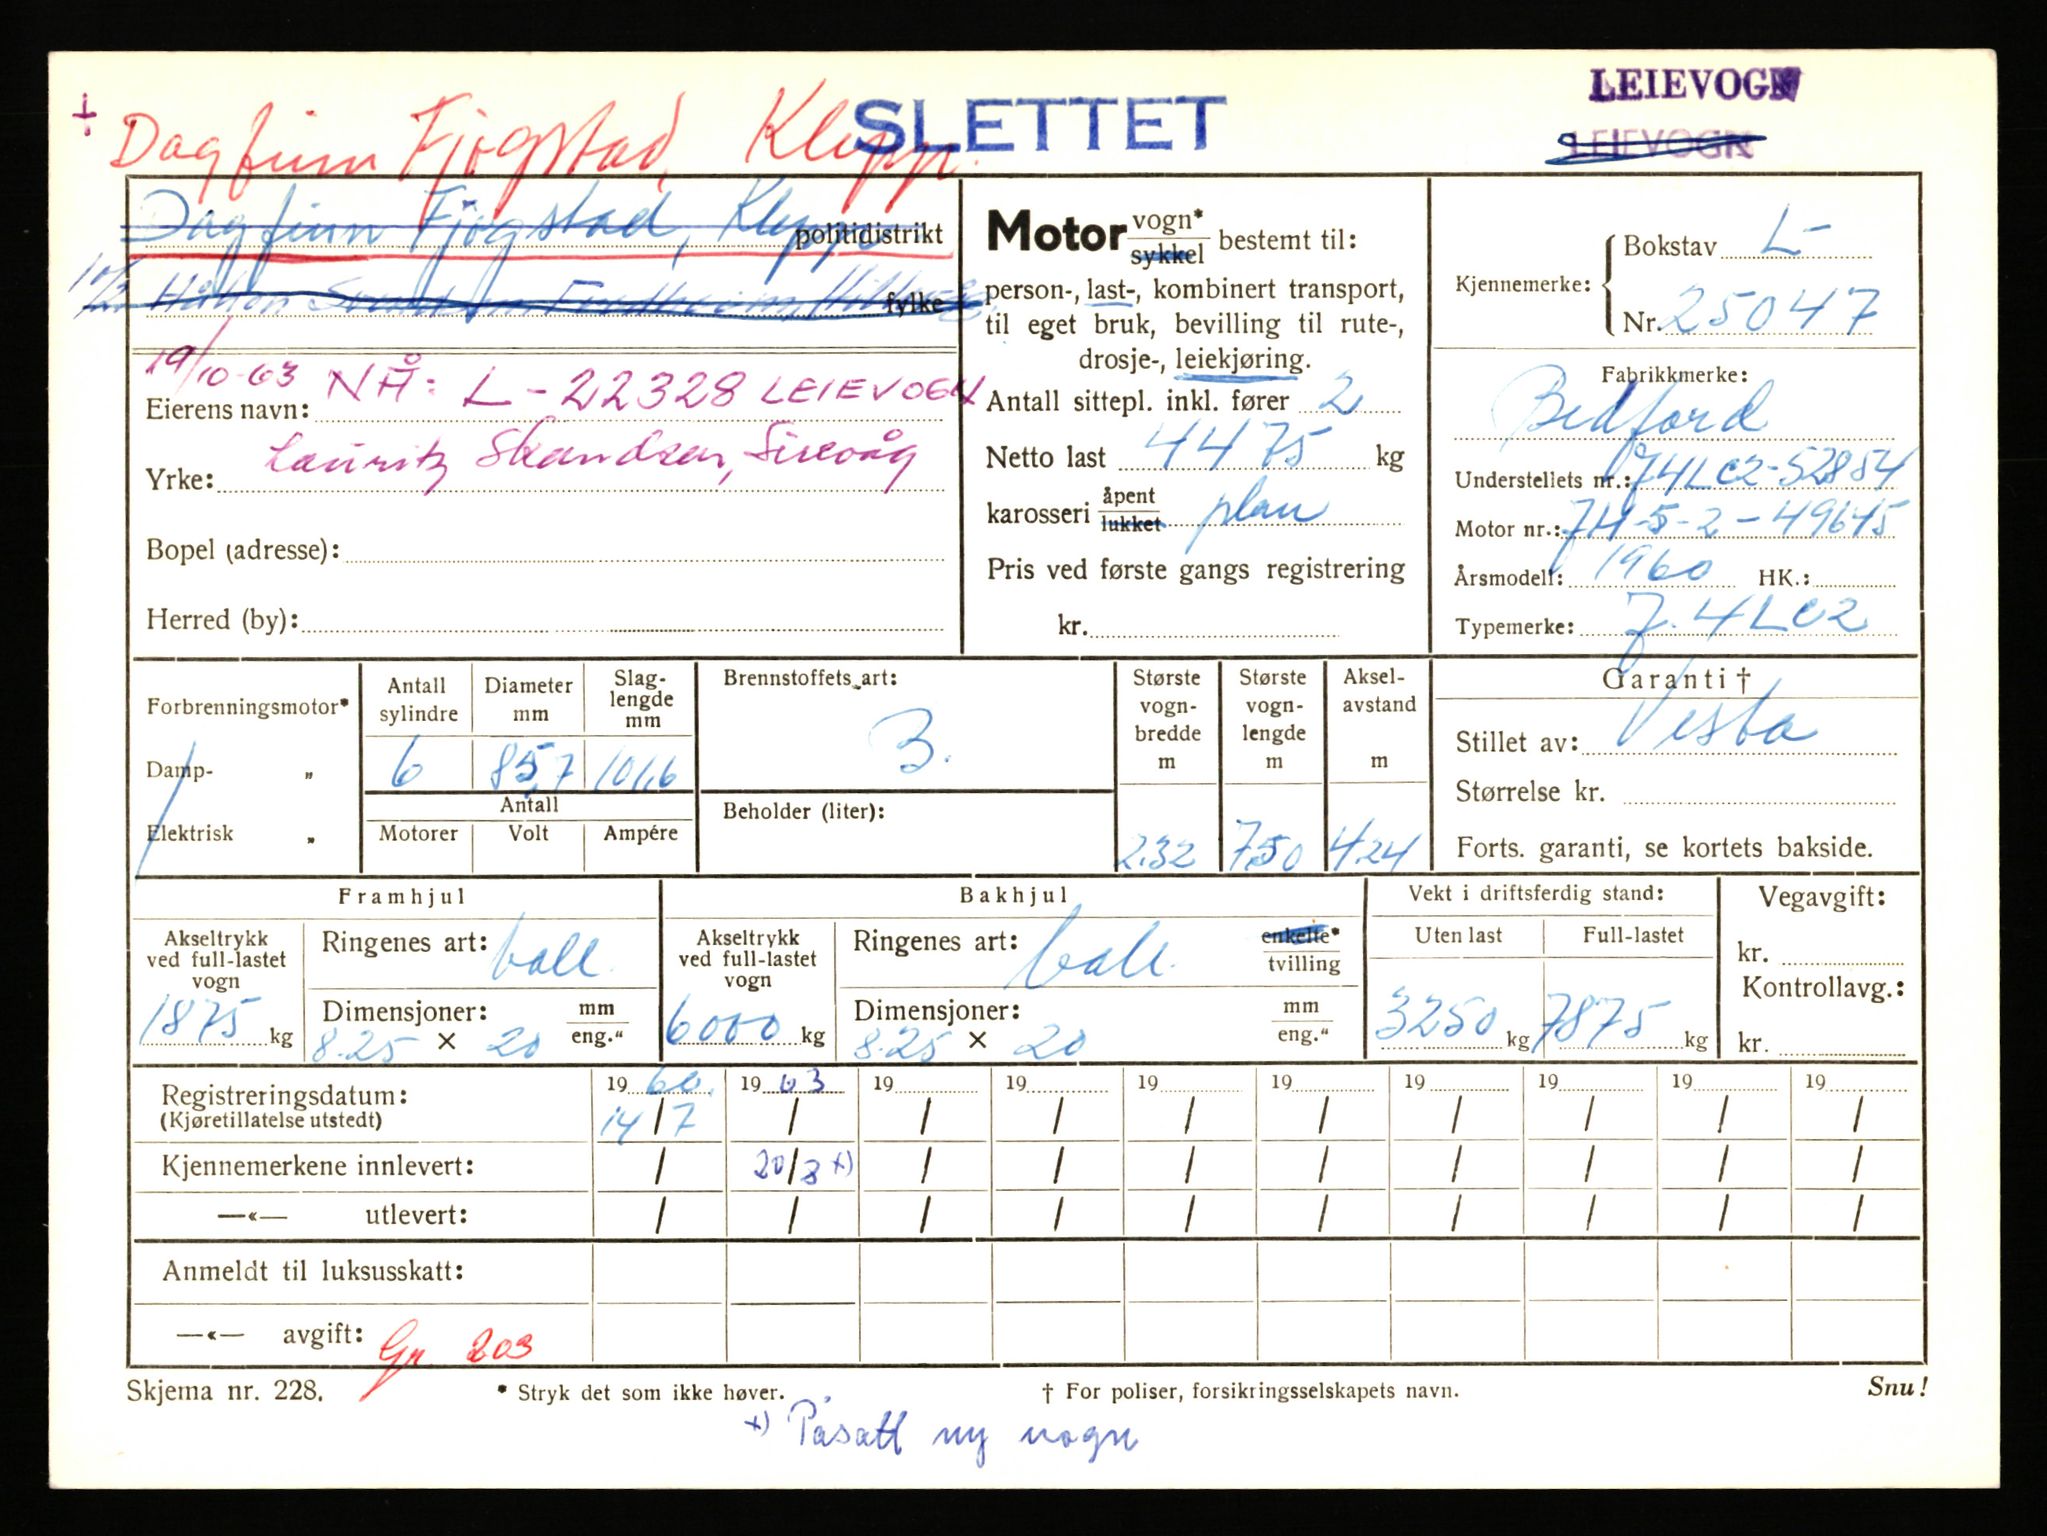 LEIEVOGN
SLETTET
LEIEVOGN
Dagfinn Fjogstad, Klepp.
Dagfinn Fjogstad, Klepp politidistrikt
10/2 Håkon fylke
19/10-63 NÅ: L-22328 LEIEVOGN
Eierens navn:
Lauritz Skandsen, Sirevåg
Yrke:
Bopel (adresse):
Herred (by):
Motor vogn* sykkel bestemt til:
person-, last-, kombinert transport,
til eget bruk, bevilling til rute-,
drosje-, leiekjøring.
Antall sittepl. inkl. fører 2
Netto last 4475 kg
karosseri åpent lukket plan
Pris ved første gangs registrering
kr.
Kjennemerke: Bokstav L-
Nr. 25047
Fabrikkmerke:
Bedford
Understellets nr.: J4LC2-52854
Motor nr.: JH-5-2-49645
Årsmodell: 1960 HK.:
Typemerke: J.4LC2
Forbrenningsmotor*
Damp- „
Elektrisk „
Antall sylindre Diameter mm Slag-lengde mm
6 85,7 101,6
Antall
Motorer Volt Ampére
Brennstoffets art:
B.
Beholder (liter):
Største vogn-bredde m Største vogn-lengde m Aksel-avstand m
2.32 7.50 4.24
Garanti †
Stillet av: Vesta
Størrelse kr.
Forts. garanti, se kortets bakside.
Framhjul
Akseltrykk ved full-lastet vogn
1875 kg
Ringenes art: ball.
Dimensjoner: mm eng."
8.25 × 20
Bakhjul
Akseltrykk ved full-lastet vogn
6000 kg
Ringenes art: ball. enkelte* tvilling
Dimensjoner: mm eng."
8.25 × 20
Vekt i driftsferdig stand:
Uten last Full-lastet
3250 kg 7875 kg
Vegavgift:
kr.
Kontrollavg.:
kr.
Registreringsdatum: 19 60. 19 63 19 19 19 19 19 19 19 19
(Kjøretillatelse utstedt) 14/7 / / / / / / / / /
Kjennemerkene innlevert: / 20/8 x) / / / / / / / /
—«— utlevert: / / / / / / / / / /
Anmeldt til luksusskatt:
—«— avgift: Gr 203
Skjema nr. 228. * Stryk det som ikke høver. † For poliser, forsikringsselskapets navn. Snu!
x) Påsatt ny vogn